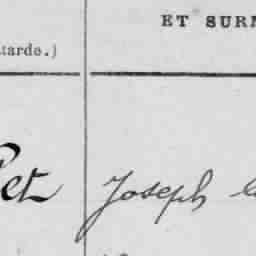 ET SURN
tarde.)
et Joseph